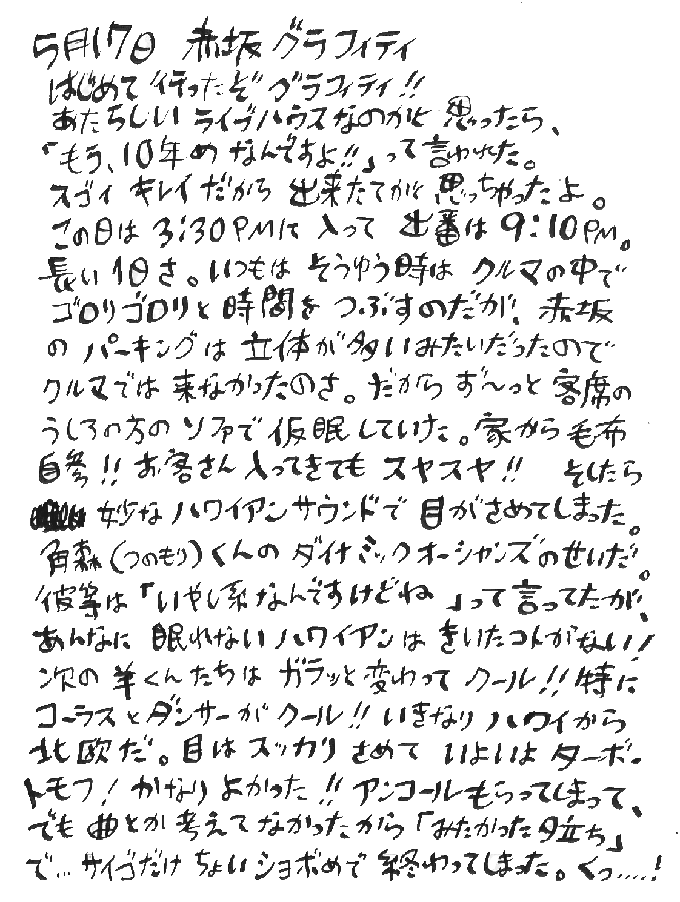 5月17日 赤坂 グラフィティ
はじめて 行ったぞ グラフィティ!!
あたらしい ライブハウスなのかと 思ったら、
「もう、10年め なんですよ!!」って 言われた。
スゴイ キレイ だから 出来たてかと 思っちゃったよ。
この日は 3:30PMに 入って 出番は 9:10PM。
長い 1日さ。いつもは そうゆう時は クルマの中で
ゴロリゴロリと 時間を つぶすのだが、赤坂
の パーキングは 立体が 多いみたいだったので
クルマでは 来なかったのさ。だから ず〜っと 客席の
うしろの方の ソファで 仮眠していた。家から 毛布
自参!! お客さん 入ってきても スヤスヤ!! そしたら
妙な ハワイアンサウンドで 目がさめてしまった。
角森(つのもり)くんの ダイナミックオーシャンズのせいだ。
彼等は「いやし系なんですけどね」って 言ってたが、
あんなに 眠れない ハワイアンは きいたコトがない!
次の 羊くんたちは ガラッと変わって クール!! 特に
コーラスとダンサーが クール!! いきなり ハワイから
北欧だ。目は スッカリ さめて いよいよ ターボ・
トモフ! かなり よかった!! アンコールもらってしまって、
でも 曲とか 考えて なかったから「みたかった夕立ち」
で… サイゴだけ ちょい ショボめで 終わってしまった。くっ……!